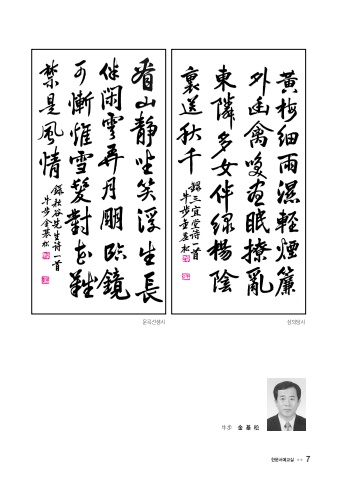 黃梅細雨濕輕煙簾
外幽禽喚晝眠撩亂
東隣多女伴綠楊陰
裏送秋千
錄三宜堂詩一首
牛步金基松
삼의당시
看山靜坐笑浮生長
伴閑雲弄月明臨鏡
可慚惟雪鬂對花難
禁是風情
錄耘谷先生詩一首
牛步金基松
운곡선생시
牛步 金基松
한문서예교실 7